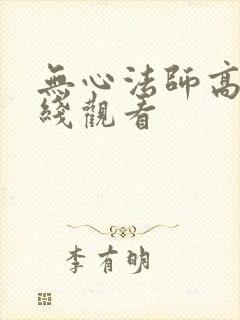 無心法師高
綫觀看
李有明